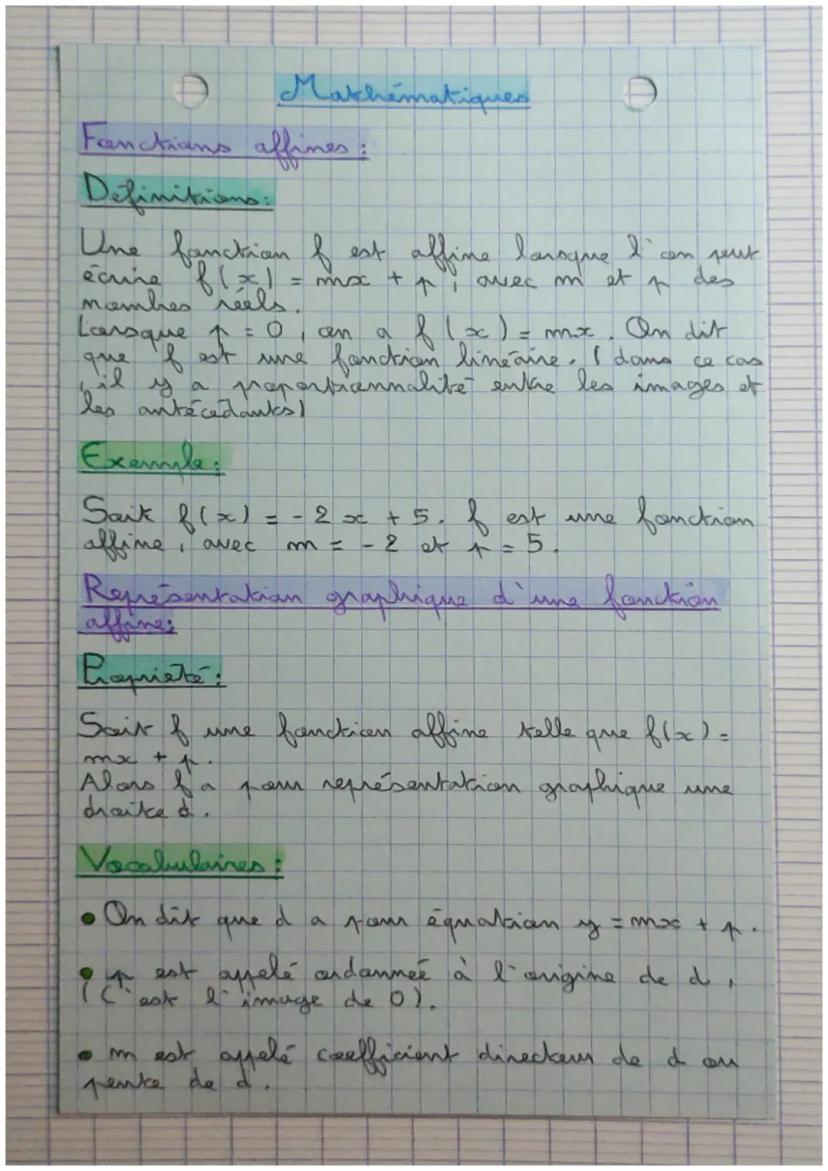 Mathématiques
Fonctions affines :
Définitions :
Une fonction f est affine lorsque l'on peut
écrire f(x) = mx + p, avec m et p des
nombres réels.
Lorsque p = 0, on a f(x) = mx. On dit
que f est une fonction linéaire. (dans ce cas
, il y a proportionnalité entre les images et
les antécédants)
Exemple :
Soit f(x) = -2x + 5. f est une fonction
affine, avec m = -2 et p = 5.
Représentation graphique d'une fonction
affine :
Propriété :
Soit f une fonction affine telle que f(x) =
mx + p.
Alors f a pour représentation graphique une
droite d.
Vocabulaires :
• On dit que d a pour équation y = mx + p.
• p est appelé ordonnée à l'origine de d,
(C'est l'image de 0).
• m est appelé coefficient directeur de d ou
pente de d.